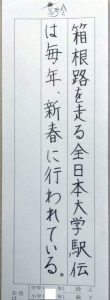 箱根路を走る全日本大学駅伝
は毎年、新春に行われている。